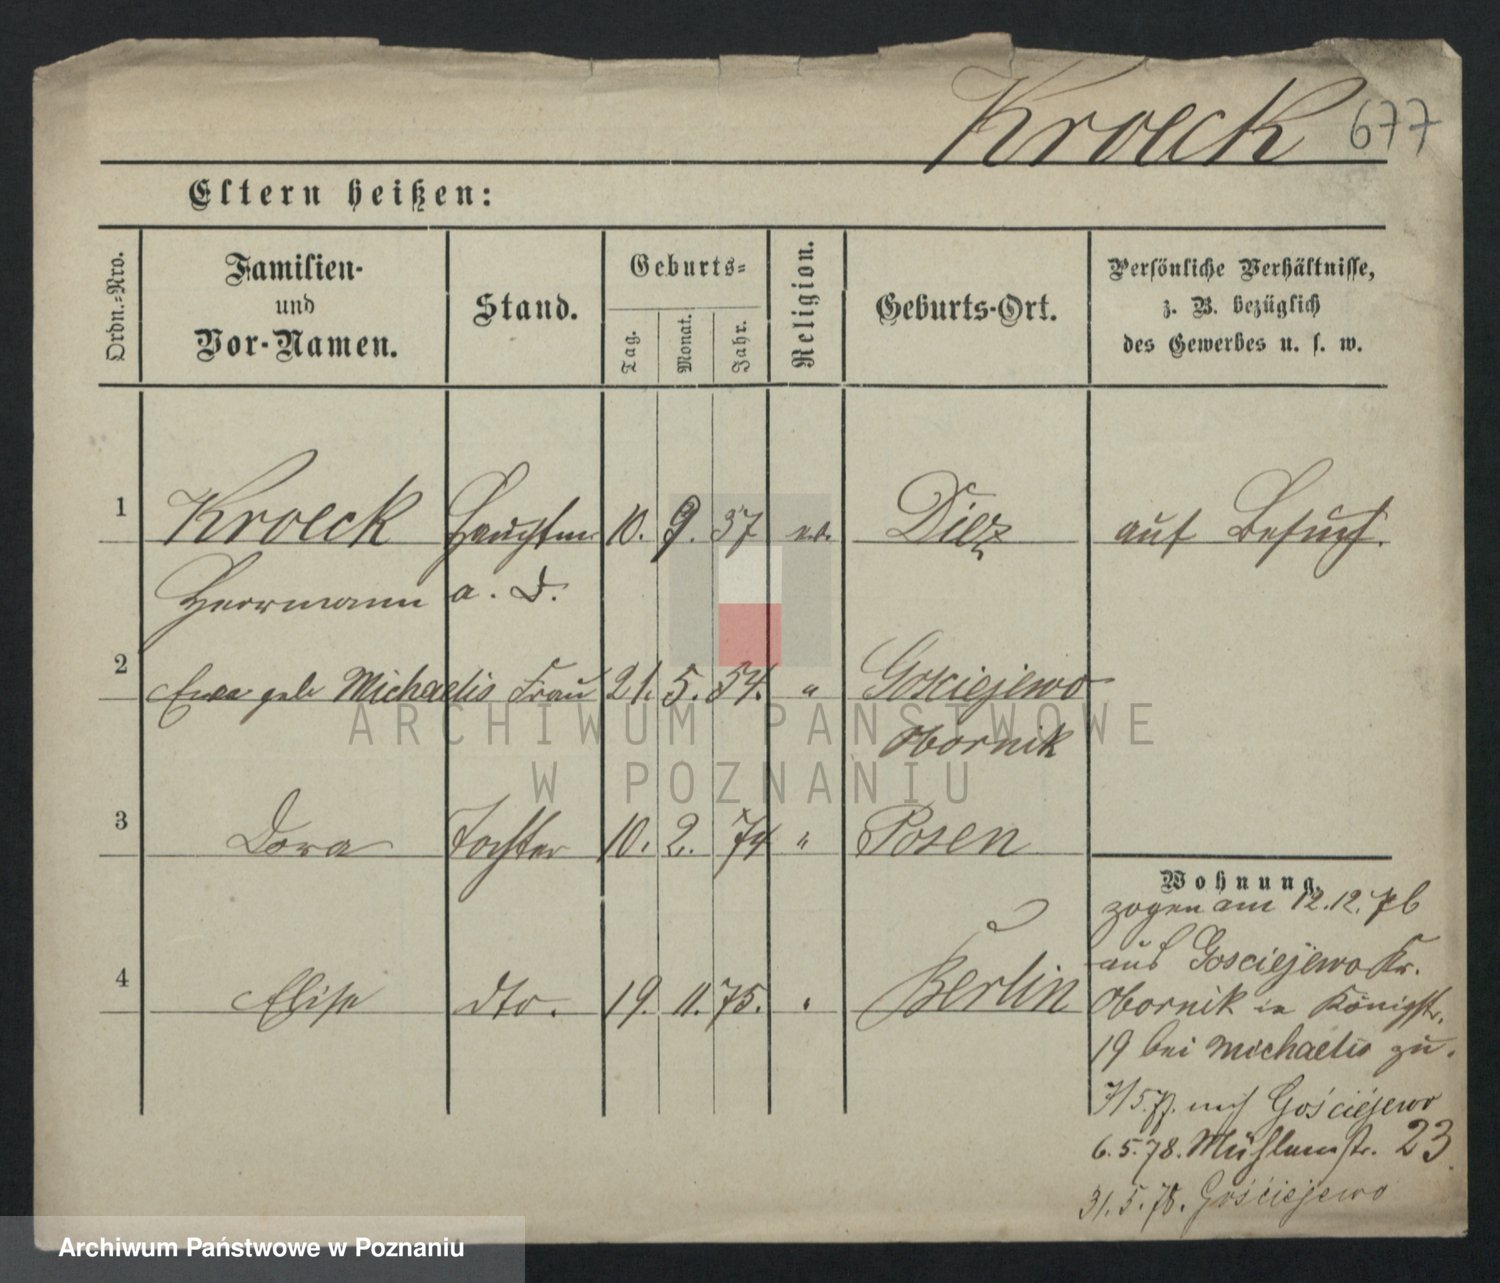 Kroeck 677
Eltern heißen:
Ordn.-Nro.
Familien-
und
Vor-Namen.
Stand.
Geburts-
Tag.
Monat.
Jahr.
Religion.
Geburts-Ort.
Persönliche Verhältnisse,
z. B. bezüglich
des Gewerbes u. s. w.
1 Kroeck Hauptm. 10. 9. 37 ev. Diez auf Besuch.
Herrmann a. D.
2 Ewa geb Michaelis Frau 21. 5. 54. " Gosciejewo
Obornik
3 Dora Tochter 10. 2. 74 " Posen
4 Elise dto. 19. 11. 75. " Berlin
Wohnung.
zogen am 12.12.76
aus Gosciejewo Kr.
Obornik in Königstr.
19 bei Michaelis zu.
7/5.77. nach Gościejewo
6.5.78. Mühlenstr. 23
31.5.78. Gościejewo
ARCHIWUM PAŃSTWOWE
W POZNANIU
Archiwum Państwowe w Poznaniu